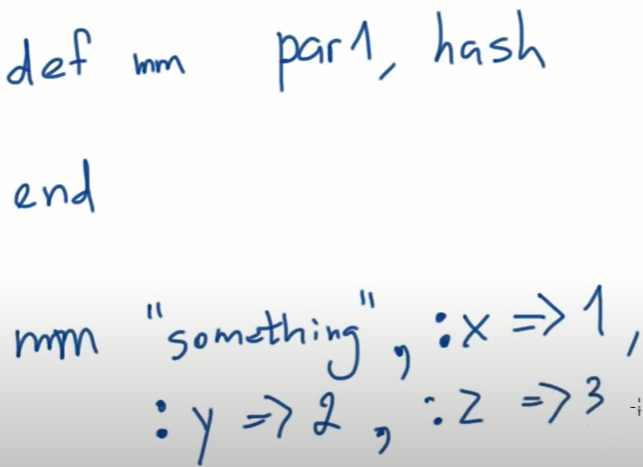 def mm par1, hash
end
mm "something", :x => 1,
:y => 2, :z => 3